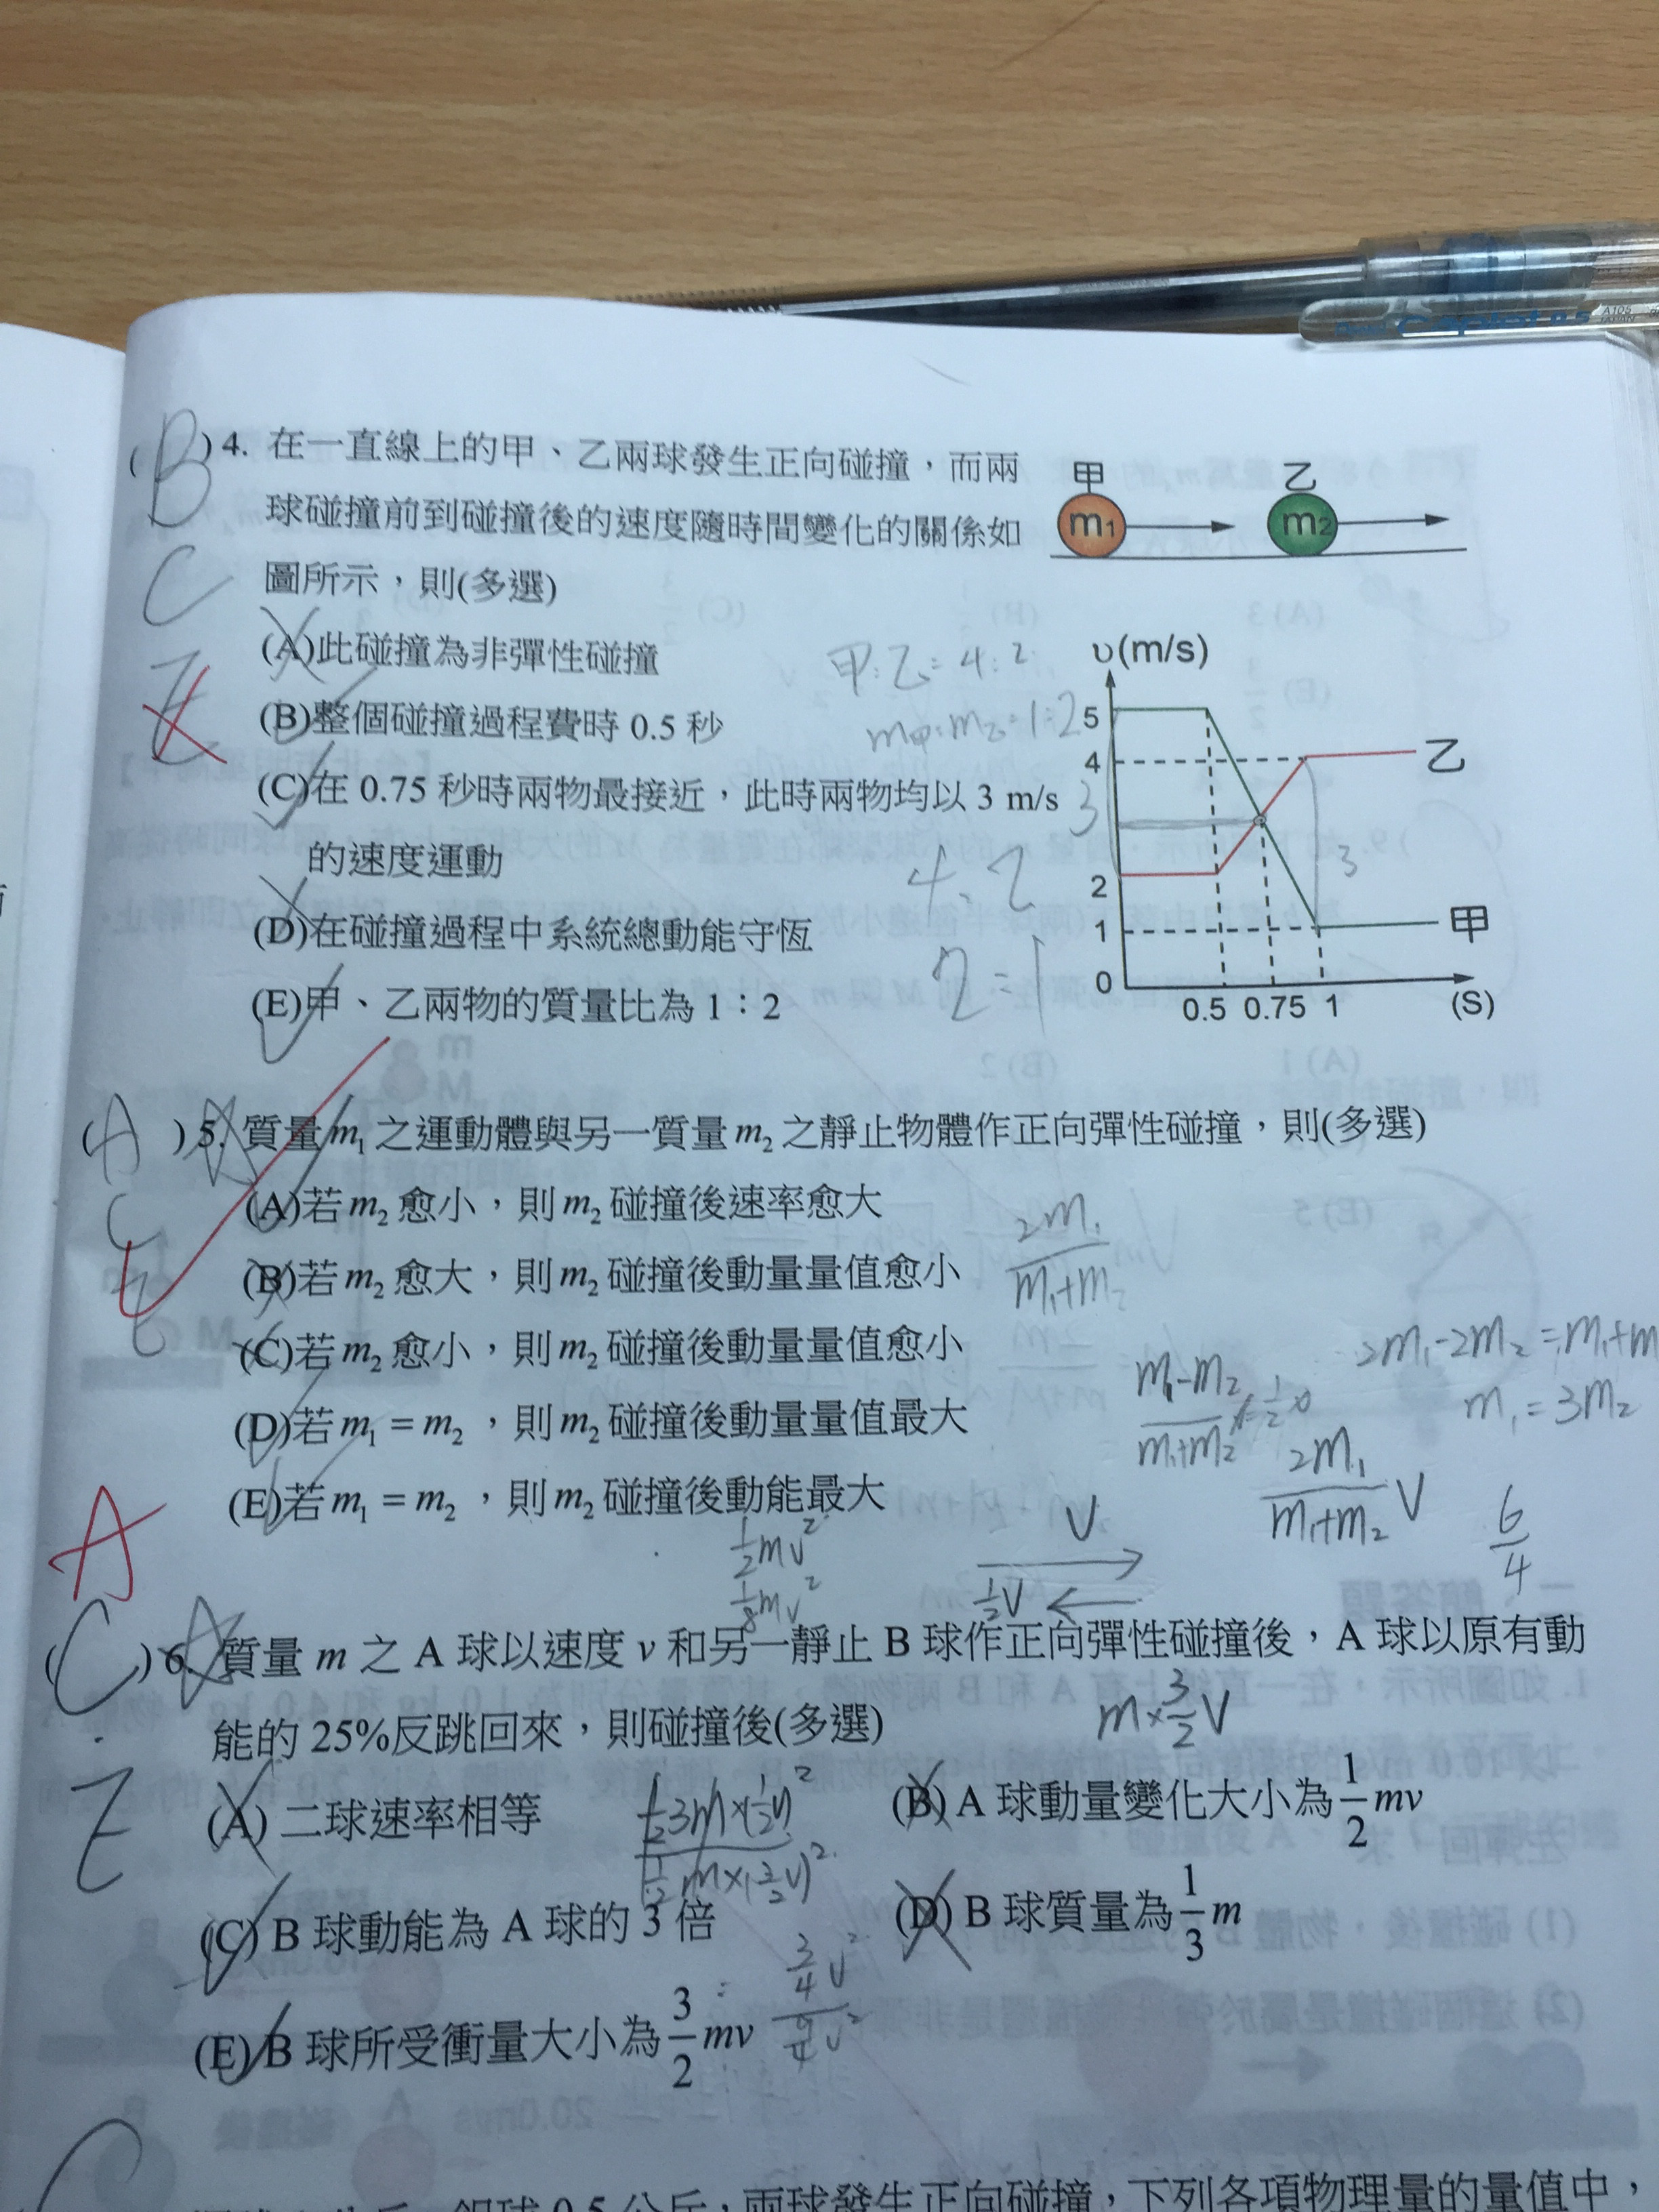 (B)4. 在一直線上的甲、乙兩球發生正向碰撞，而兩
球碰撞前到碰撞後的速度隨時間變化的關係如
圖所示，則(多選)
C
(A)此碰撞為非彈性碰撞
(B)整個碰撞過程費時 0.5 秒
(C)在 0.75 秒時兩物最接近，此時兩物均以 3 m/s
的速度運動
(D)在碰撞過程中系統總動能守恆
(E)甲、乙兩物的質量比為 1：2
甲 乙
m₁ m₂
甲:乙=4:2
m甲:m乙=1:2
4:2
2=1
υ(m/s)
5
4
3
2
1
0
0.5 0.75 1 (S)
乙
甲
3
(A )5. 質量 m₁ 之運動體與另一質量 m₂ 之靜止物體作正向彈性碰撞，則(多選)
C
E
(A)若 m₂ 愈小，則 m₂ 碰撞後速率愈大
(B)若 m₂ 愈大，則 m₂ 碰撞後動量量值愈小
(C)若 m₂ 愈小，則 m₂ 碰撞後動量量值愈小
(D)若 m₁ = m₂ ，則 m₂ 碰撞後動量量值最大
(E)若 m₁ = m₂ ，則 m₂ 碰撞後動能最大
2m₁/m₁+m₂
2m₁-2m₂=m₁+m
m₁=3m₂
m₁-m₂/m₁+m₂
2m₁/m₁+m₂ V
6/4
½mv²
⅛mv²
V
½V
A
(C)6. 質量 m 之 A 球以速度 v 和另一靜止 B 球作正向彈性碰撞後，A 球以原有動
能的 25%反跳回來，則碰撞後(多選)
m×3/2V
E
(A) 二球速率相等
(B) A 球動量變化大小為 1/2 mv
(C) B 球動能為 A 球的 3 倍
(D) B 球質量為 1/3 m
(E) B 球所受衝量大小為 3/2 mv
½3m×(½v)²
½m×(3/2v)²
3/4v²
9/4v²
兩球發生正向碰撞，下列各項物理量的量值中，